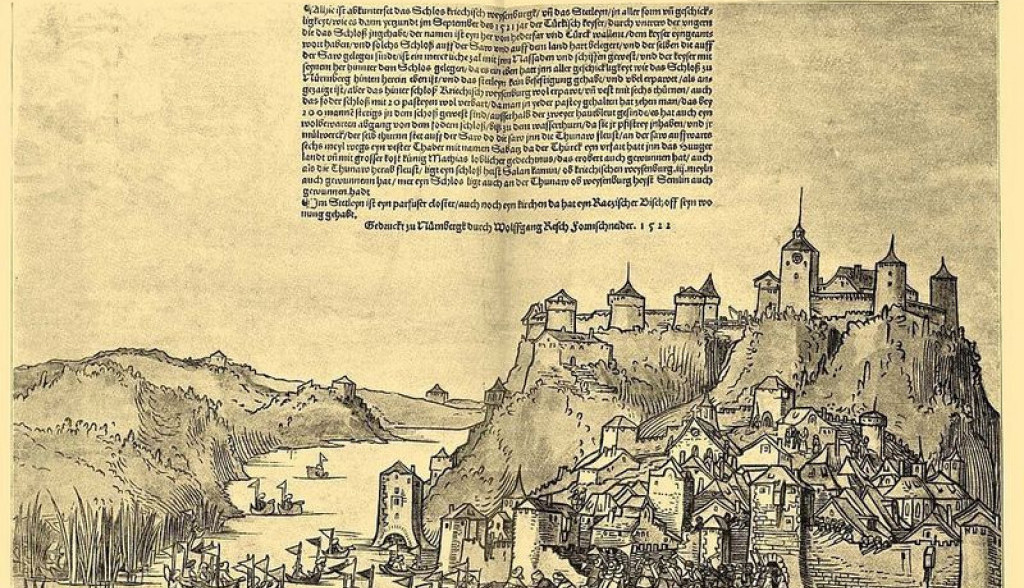 Allhie ist abkunterfet das Schlos kriechisch weysenburgk/ vñ das Stetleyn/in aller form vñ geschick-
ligkeyt/wie es dann yetzundt jm September des 1521 jar der Türkisch keyser/durch der vngern
die das Schloß jngehabt/der namen ist eyn her von vnd Türck wallent/dem keyser eyngeantt
wort haben/vnd solchs Schloß auff der Saw vnd auff dem land hart belegert/vnd der selben die auff
der Saw gelegen sindt/ist ein merckliche zal mit jren Nassaden vnd schiffen gewest/vnd der keyser mit
seynem her hinder dem Schlos gelegen/da es ein eben hatt jnn aller geschickligkeyt wie das Schloß zu
Nürmberg hinten herein eben ist/vnd das stetleyn kein befestigung gehabt/vnd vbel erpawet/als an-
gezaigt ist/aber das hinter schloß Kriechisch weysenburg wol erpawt/vñ vest mit sechs thürnen/auch
das foder schloß mit 20 pasteyen wol verbart/da man jn yeder pastey gehalten hat zehen man/das bey
200 mannē stetigs jn dem schloß gewest sind/ausserhalb der zweyer haubtleut gesinde/es hat auch eyn
wolbewarten abgang von dem fodern schloß/biß zu dem wasserthurn/da sie jr pfistrey jnhaben/vnd jr
mülwerck/der selb thurrn stet auff der Saw do die saw jnn die Thunaw fleust/an der saw auffwarts
sechs meyl wegs eyn vester Chader mit namen Sabatz da der Thürck eyn vrfart hatt jnn das Hunger
landt vñ mit grosser kost künig Mathias loblicher gedechtnus/das erobert auch gewunnen hat/auch
als die Thunaw herab fleust/ligt eyn schloß heist Salan kamun/ob kriechischen weysenburg.iij.meyln
auch gewunnenn hat/mer eyn Schlos ligt auch an der Thunaw ob weysenburg heyst Semlin auch
gewunnen.hadt
Jm Stetleyn ist eyn parfuser closter/auch noch eyn kirchen da hat eyn Raezischer Bischoff seyn wo
nung gehabt.
Gedruckt zu Nürmbergk durch Wolffgang Resch Formschneider. 1522